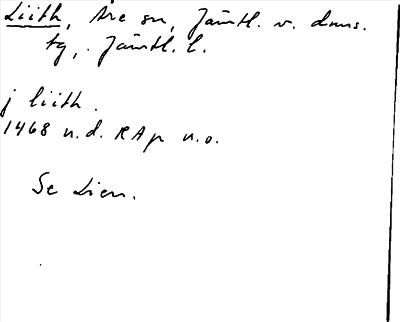 Liith, Åre sn, Jämtl. v. doms.
tg, Jämtl. l.
j liith.
1468 u.d. RAp n.o.
Se Lien.